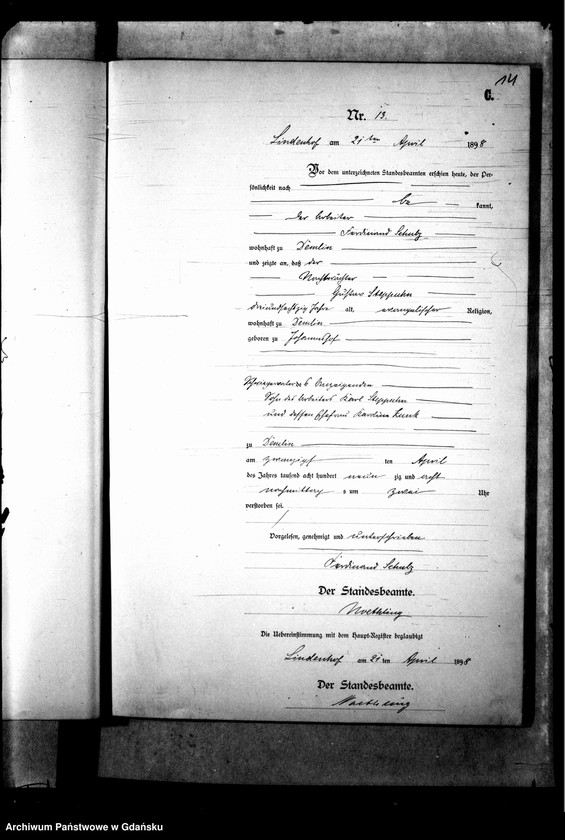 14
C.
Nr. 13.
Lindenhof am 21ten April 1898
Vor dem unterzeichneten Standesbeamten erschien heute, der Per-
sönlichkeit nach
be kannt,
der Arbeiter
Ferdinand Schulz
wohnhaft zu Demlin
und zeigte an, daß der
Nachtwächter
Gustav Steppuhn
dreiundsechzig Jahre alt, evangelischer Religion,
wohnhaft zu Demlin
geboren zu Johannishof
Schwiegervater des Anzeigenden
Sohn des Arbeiters Karl Steppuhn
und dessen Ehefrau Karolina
zu Demlin
am zwanzigsten April
des Jahres tausend acht hundert neun zig und acht
nachmittags um zwei Uhr
verstorben sei.
Vorgelesen, genehmigt und unterschrieben
Ferdinand Schulz
Der Standesbeamte.
Noethling
Die Uebereinstimmung mit dem Haupt-Register beglaubigt
Lindenhof am 21 ten April 1898
Der Standesbeamte.
Noethling
Archiwum Państwowe w Gdańsku